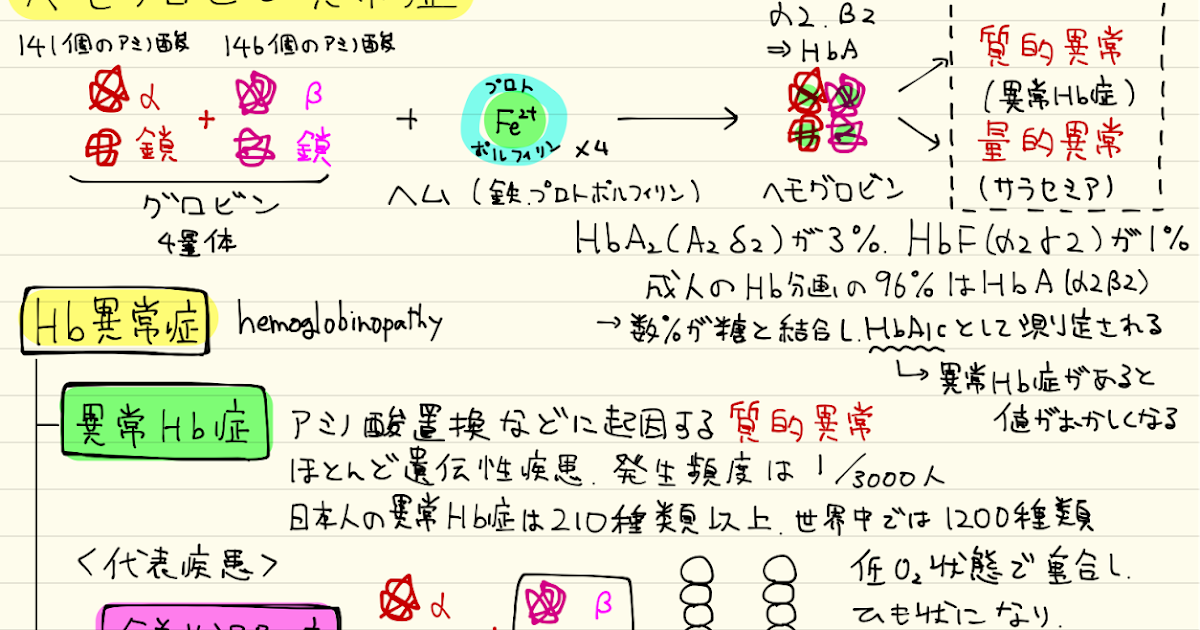 ヘモグロビン異常症
141個のアミノ酸 146個のアミノ酸
α2.β2
⇒HbA
α鎖 + β鎖 + プロト Fe2+ ポルフィリン ×4
グロビン
4量体
ヘム(鉄.プロトポルフィリン)
ヘモグロビン
質的異常
(異常Hb症)
量的異常
(サラセミア)
HbA2(A2δ2)が3%. HbF(α2γ2)が1%
成人のHb分画の96%はHbA(α2β2)
→数%が糖と結合し.HbA1cとして測定される
↳異常Hb症があると
値がおかしくなる
Hb異常症 hemoglobinopathy
異常Hb症 アミノ酸置換などに起因する質的異常
ほとんど遺伝性疾患.発生頻度は1/3000人
日本人の異常Hb症は210種類以上.世界中では1200種類
<代表疾患>
α β
低O2状態で重合し.
ひも状になり.